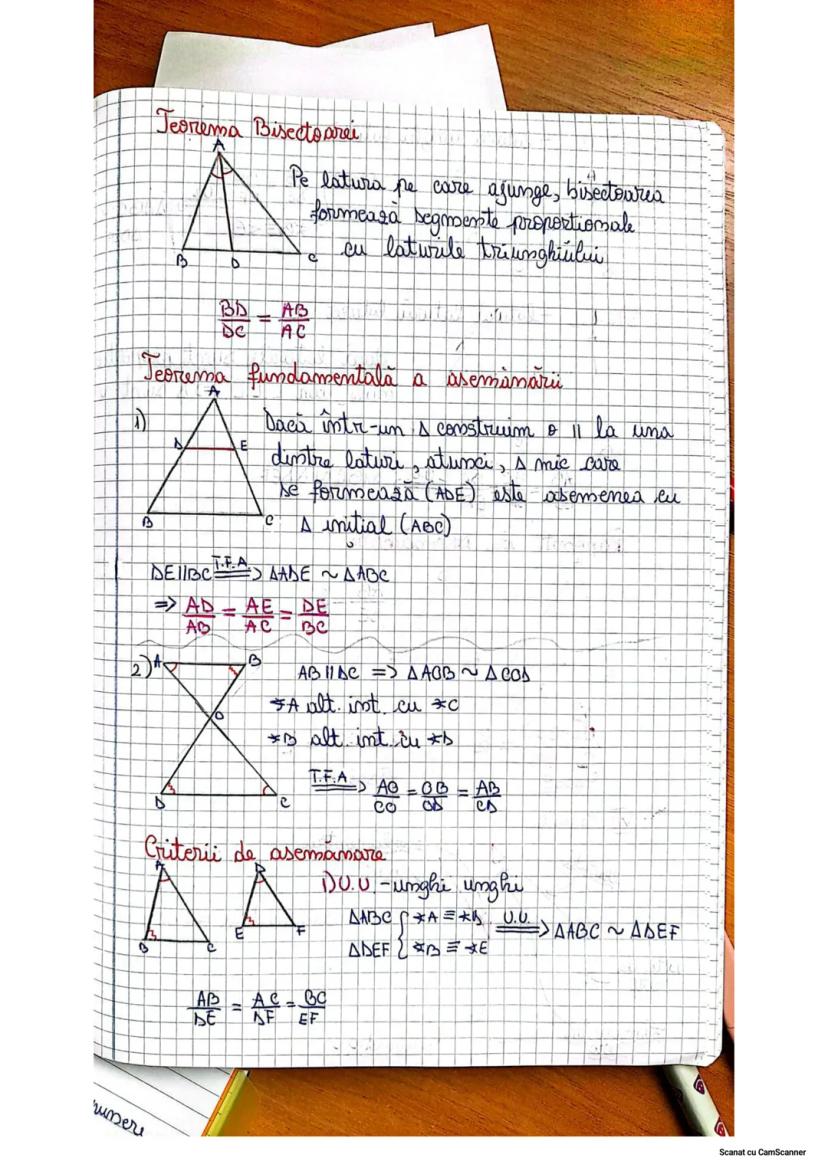 Teorema Bisectoarei
A
Pe latura pe care ajunge, bisectoarea
formează segmente proporționale
cu laturile triunghiului
B D C
BD/DC = AB/AC
Teorema fundamentală a asemănării
1)
A
Dacă într-un Δ construim o || la una
D E
dintre laturi, atunci, Δ mic care
se formează (ADE) este asemenea cu
B C
Δ inițial (ABC)
DE||BC T.F.A ⟹ ΔADE ~ ΔABC
=> AD/AB = AE/AC = DE/BC
2) A B
AB||DC => ΔAOB ~ ΔCOD
∢A alt. int. cu ∢C
O
∢B alt. int. cu ∢D
T.F.A ⟹ AO/CO = OB/OD = AB/CD
D C
Criterii de asemănare
A D
1) U.U - unghi unghi
B C E F
ΔABC { ∢A ≡ ∢D
ΔDEF { ∢B ≡ ∢E
U.U. ⟹ ΔABC ~ ΔDEF
AB/DE = AC/DF = BC/EF
Scanat cu CamScanner